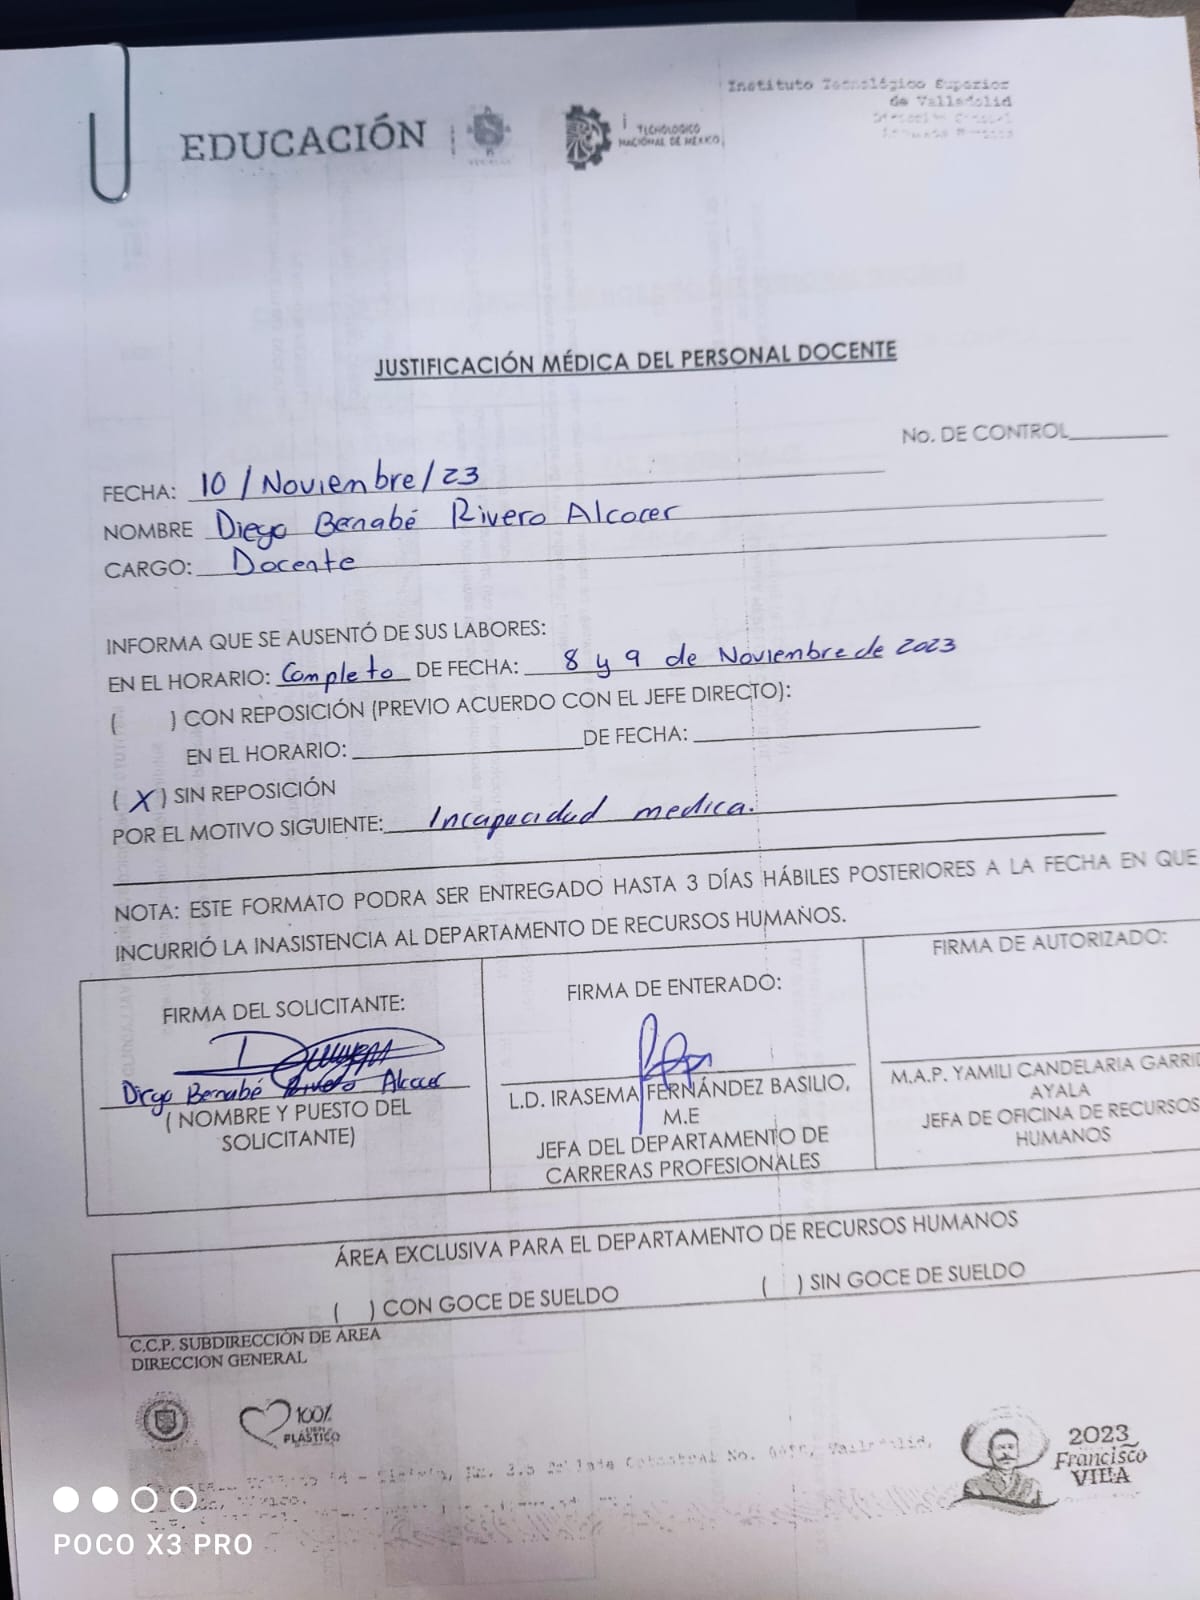 Instituto Tecnológico Superior
de Valladolid
EDUCACIÓN
TECNOLOGICO
NACIONAL DE MEXICO
JUSTIFICACIÓN MÉDICA DEL PERSONAL DOCENTE
No. DE CONTROL
FECHA: 10/Noviembre/23
NOMBRE Diego Bernabé Rivero Alcocer
CARGO: Docente
INFORMA QUE SE AUSENTÓ DE SUS LABORES:
EN EL HORARIO: Completo DE FECHA: 8 y 9 de Noviembre de 2023
( ) CON REPOSICIÓN (PREVIO ACUERDO CON EL JEFE DIRECTO):
EN EL HORARIO: DE FECHA:
( X ) SIN REPOSICIÓN
POR EL MOTIVO SIGUIENTE: Incapacidad medica.
NOTA: ESTE FORMATO PODRA SER ENTREGADO HASTA 3 DÍAS HÁBILES POSTERIORES A LA FECHA EN QUE
INCURRIÓ LA INASISTENCIA AL DEPARTAMENTO DE RECURSOS HUMANOS.
FIRMA DEL SOLICITANTE:
Diego Bernabé Rivero Alcocer
( NOMBRE Y PUESTO DEL
SOLICITANTE)
FIRMA DE ENTERADO:
L.D. IRASEMA FERNÁNDEZ BASILIO,
M.E
JEFA DEL DEPARTAMENTO DE
CARRERAS PROFESIONALES
FIRMA DE AUTORIZADO:
M.A.P. YAMILI CANDELARIA GARRID
AYALA
JEFA DE OFICINA DE RECURSOS
HUMANOS
ÁREA EXCLUSIVA PARA EL DEPARTAMENTO DE RECURSOS HUMANOS
( ) CON GOCE DE SUELDO ( ) SIN GOCE DE SUELDO
C.C.P. SUBDIRECCIÓN DE AREA
DIRECCION GENERAL
100%
PLÁSTICO
2023
Francisco
VILLA
POCO X3 PRO